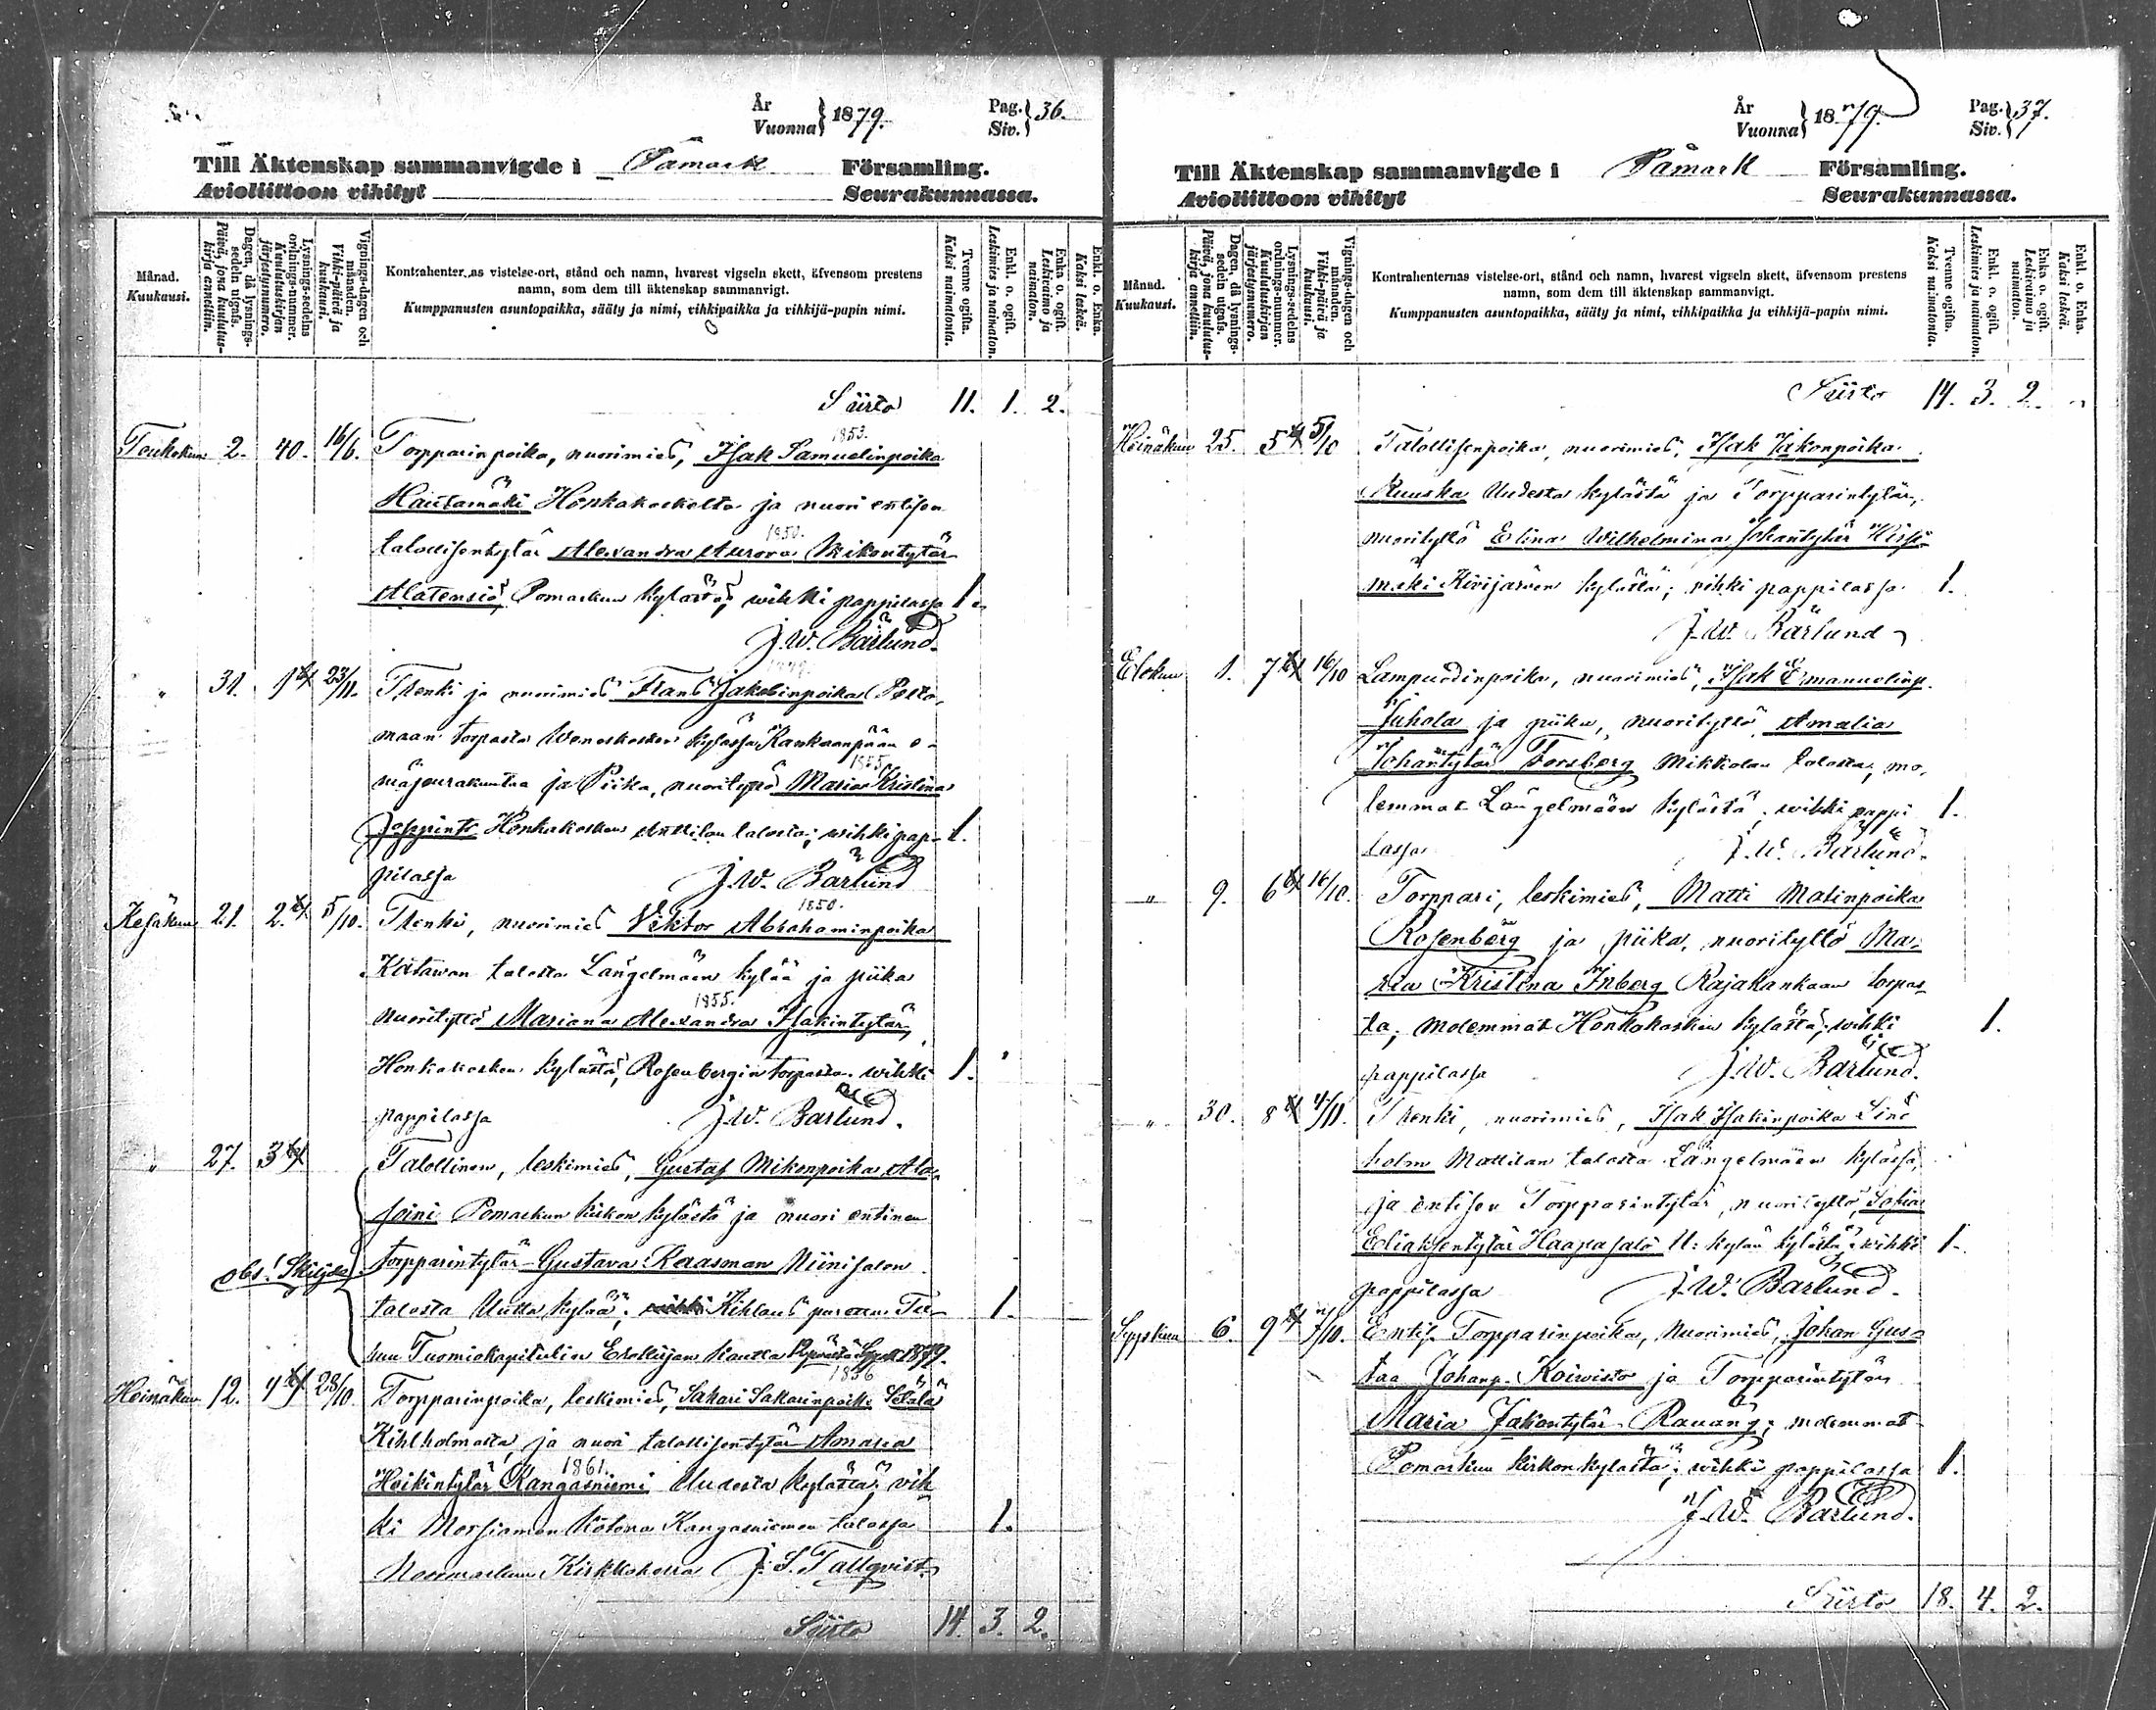 År
Vuonna } 1879.
Pag.
Siv. } 36.
Till Äktenskap sammanvigde i Påmark Församling.
Avioliittoon vihityt Seurakunnassa.
Månad.
Kuukausi.
Dagen, då lysnings-
sedeln utgafs.
Päivä, jona kuulutus-
kirja annettiin.
Lysnings-sedelns
ordnings-nummer.
Kuulutuskirjan
järjestysnumero.
Vignings-dagen och
månaden.
Vihki-päivä ja
kuukausi.
Kontrahenternas vistelse-ort, stånd och namn, hvarest vigseln skett, äfvensom prestens
namn, som dem till äktenskap sammanvigt.
Kumppanusten asuntopaikka, sääty ja nimi, vihkipaikka ja vihkijä-papin nimi.
Tvenne ogifta.
Kaksi naimatonta.
Enkl. o. ogift.
Leskimies ja naimaton.
Enka o. ogift.
Leskivaimo ja
naimaton.
Enkl. o. Enka.
Kaksi leskeä.
Siirto 11. 1. 2.
1853.
Toukokuu 2. 40. 16/6. Torpparin poika, nuorimies, Isak Samuelinpoika
Hautamäki Honkakoskelta ja nuori entisen
1850.
talollisentytär Alexandra Aurora Mikontytär
Alatensiö, Pomarkun kylästä, wihki pappilassa 1.
J. W. Bärlund.
" 31. 1 23/11. Renki ja nuorimies Frans Jakobinpoika Pelto-
maan torpasta Weneskosken kylässä Kankaanpään e-
1855.
mäseurakuntaa ja Piika, nuorityttö Maria Kristina
Honkakosken Anttilan talosta; wihki pap- 1.
pilassa J. W. Bärlund
1850.
Kesäkuu 21. 2. 5/10. Renki, nuorimies Viktor Abrahaminpoika
Katawan talosta Längelmäen kylää ja piika
1855.
nuorityttö Mariana Alexandra Isakintytär,
Honkakosken kylästä, Rosenbergin torpasta. wihki 1.
pappilassa J. W. Bärlund.
" 27. 3 Talollinen, leskimies, Gustaf Mikonpoika Ala-
soini Pomarkun kirkon kylästä ja nuori entinen
obs! Skiljda. torpparintytär Gustava Kaasman Niinisalon
talosta Uutta kylää; Kihlaus purettu Tu- 1.
run Tuomiokapitulin Erokirjan kautta 1879.
1856
Heinäkuu 12. 4 28/10 Torpparinpoika, leskimies, Sakari Sakarinpoika Setälä
Kihlholmasta, ja nuori talollisentytär Amasia
1861.
Heikintytär Kangasniemi Uudesta kylästä, vih-
ki Morsiamen kotona Kangasniemen talossa 1.
Noormarkun Kirkkoherra J. S. Tallqvist
Siirto 14. 3. 2.
År
Vuonna } 1879.
Pag.
Siv. } 37.
Till Äktenskap sammanvigde i Påmark Församling.
Avioliittoon vihityt Seurakunnassa.
Månad.
Kuukausi.
Dagen, då lysnings-
sedeln utgafs.
Päivä, jona kuulutus-
kirja annettiin.
Lysnings-sedelns
ordnings-nummer.
Kuulutuskirjan
järjestysnumero.
Vignings-dagen och
månaden.
Vihki-päivä ja
kuukausi.
Kontrahenternas vistelse-ort, stånd och namn, hvarest vigseln skett, äfvensom prestens
namn, som dem till äktenskap sammanvigt.
Kumppanusten asuntopaikka, sääty ja nimi, vihkipaikka ja vihkijä-papin nimi.
Tvenne ogifta.
Kaksi naimatonta.
Enkl. o. ogift.
Leskimies ja naimaton.
Enka o. ogift.
Leskivaimo ja
naimaton.
Enkl. o. Enka.
Kaksi leskeä.
Siirto 14. 3. 2. "
Heinäkuu 25. 5 5/10 Talollisenpoika, nuorimies, Isak Jakonpoika
Ruuska Uudesta kylästä ja Torpparintytär,
nuorityttö Elina Wilhelmina Johantytär Hirsi-
mäki Kivijärven kylästä; vihki pappilassa 1.
J. W. Bärlund
Elokuu 1. 7 16/10 Lampuodinpoika, nuorimies, Isak Ermanuelinp.
Juhola ja piika, nuorityttö Amalia
Johantytär Forsberg Mikkolan talosta, mo-
lemmat Längelmäen kylästä; wihki pappi 1.
lassa J. W. Bärlund.
" 9. 6 16/10. Torppari, leskimies, Matti Matinpoika
Rosenberg ja piika, nuorityttö Ma-
ria Kristina Inberg Rajakankaan torpas-
ta; molemmat Honkakosken kylästä; wihki 1.
pappilassa J. W. Bärlund.
" 30. 8 Renki, nuorimies, Isak Isakinpoika Lind
holm Mattilan talosta Längelmäen kylässä,
ja entisen Torpparintytär, nuorityttö, Sofia
Eliaksentytär Haapasalo U: kylän kylästä; wihki 1.
pappilassa J. W. Bärlund.
Syyskuu 6. 9 Entis. Torpparinpoika, Nuorimies, Johan Gus-
taa Johanp. Koiwisto ja Torpparintytär
Maria Jakontytär Rauanj; molemmat
Pomarkun kirkon kylästä; wihki pappilassa 1.
J. W. Bärlund.
Siirto 18. 4. 2.